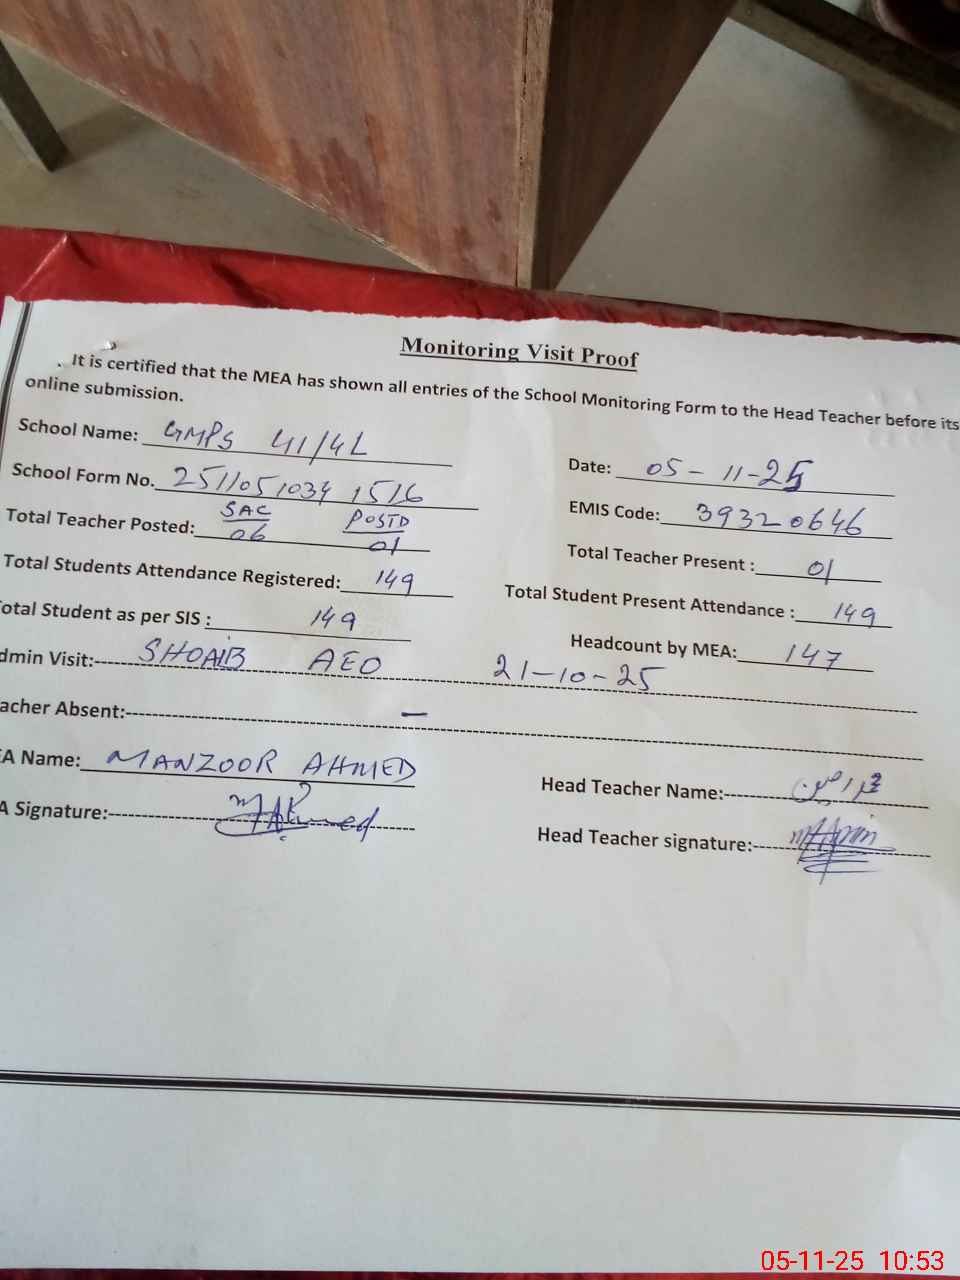 Monitoring Visit Proof
. It is certified that the MEA has shown all entries of the School Monitoring Form to the Head Teacher before its
online submission.
School Name: GMPS 41/4L
Date: 05-11-25
School Form No. 2511051034 1516
EMIS Code: 39320646
Total Teacher Posted: SAC 06 POSTD 01
Total Teacher Present : 01
Total Students Attendance Registered: 149
Total Student Present Attendance : 149
otal Student as per SIS : 149
Headcount by MEA: 147
dmin Visit: SHOAIB AEO 21-10-25
acher Absent: –
EA Name: MANZOOR AHMED
Head Teacher Name:
A Signature: MAhmed
Head Teacher signature:
05-11-25 10:53